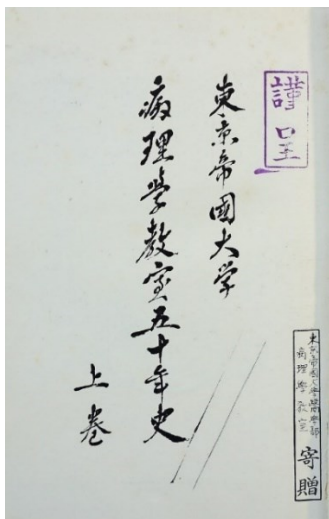 謹呈
東京帝國大学
病理學教室五十年史
上巻
東京帝國大學醫學部
病理學教室
寄贈